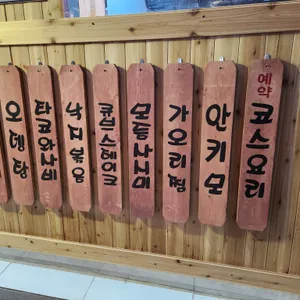 오뎅탕
타코와사비
낙지볶음
큐브스테이크
모듬사시미
가오리찜
안키모
예약
코스요리